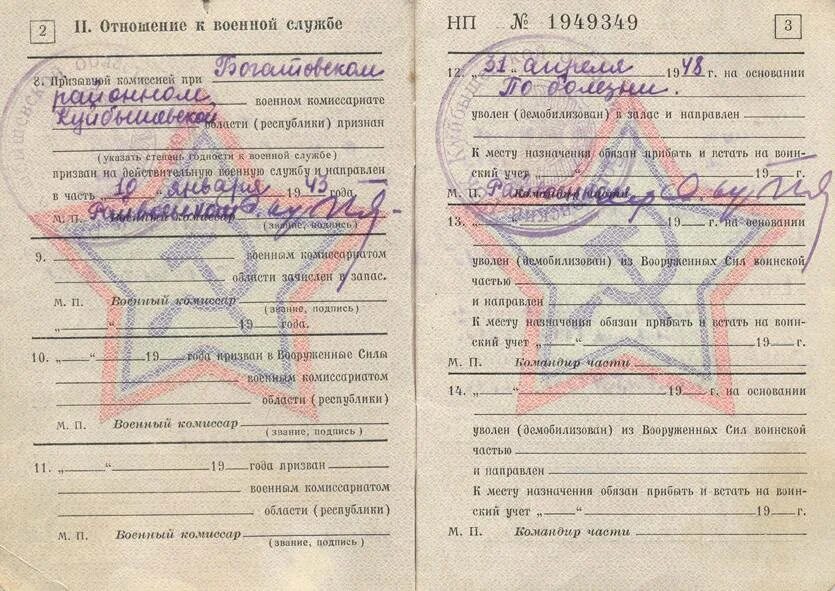 2
II. Отношение к военной службе
8. Призывной комиссией при Богатовском
районном военном комиссариате
Куйбышевской области (республики) признан
(указать степень годности к военной службе)
призван на действительную военную службу и направлен
в часть „10“ января 1943 года.
М. П. Военный комиссар
(звание, подпись)
9. военным комиссариатом
области зачислен в запас.
М. П. Военный комиссар
(звание, подпись)
„ “ 19 года.
10. „ “ 19 года призван в Вооруженные Силы
военным комиссариатом
области (республики)
М. П. Военный комиссар
(звание, подпись)
11. „ “ 19 года призван
военным комиссариатом
области (республики)
М. П. Военный комиссар
(звание, подпись)
НП № 1949349
3
12. „31“ апреля 1948 г. на основании
По болезни.
уволен (демобилизован) в запас и направлен
К месту назначения обязан прибыть и встать на воин-
ский учет „ “ 19 г.
М. П. Командир части
13. „ “ 19 г. на основании
уволен (демобилизован) из Вооруженных Сил воинской
частью
и направлен
К месту назначения обязан прибыть и встать на воин-
ский учет „ “ 19 г.
М. П. Командир части
14. „ “ 19 г. на основании
уволен (демобилизован) из Вооруженных Сил воинской
частью
и направлен
К месту назначения обязан прибыть и встать на воин-
ский учет „ “ 19 г.
М. П. Командир части